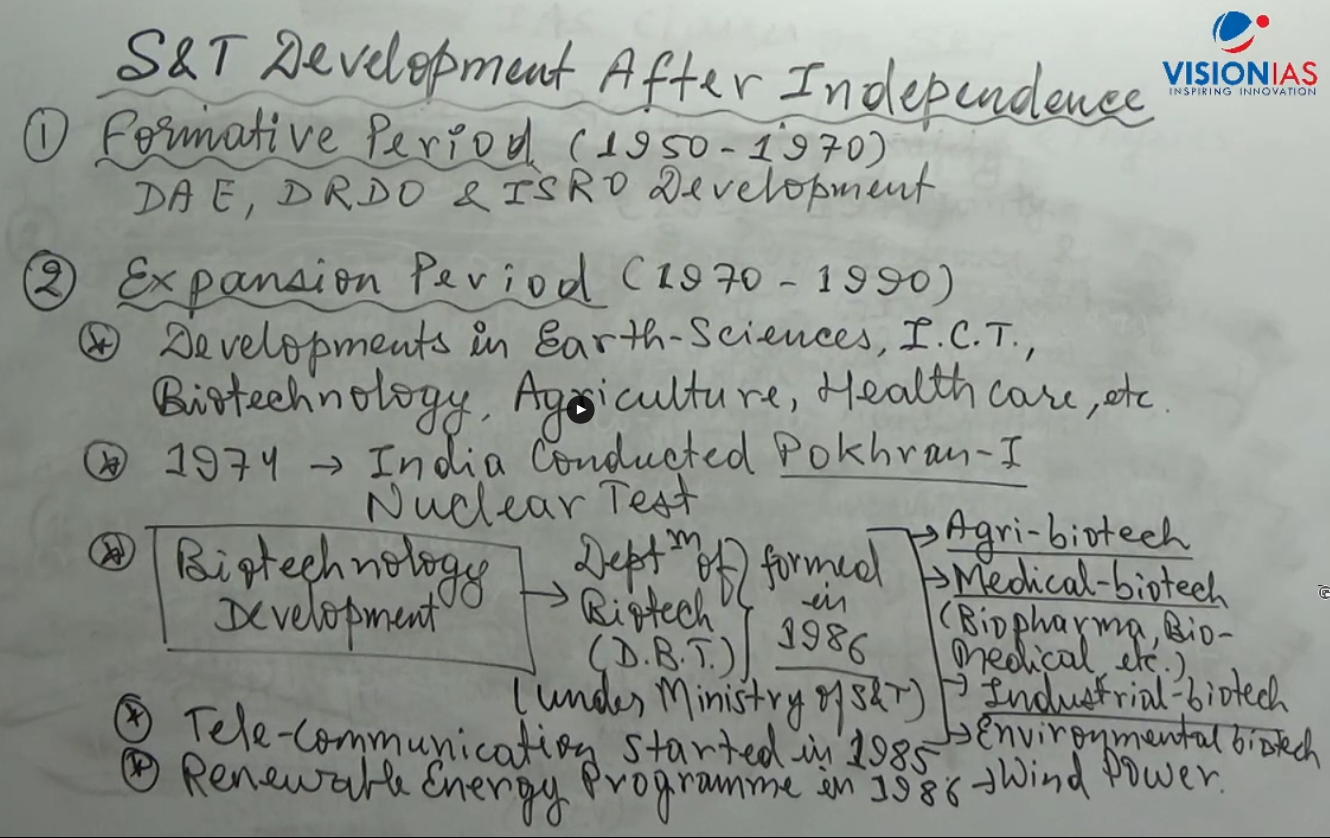 VISIONIAS
INSPIRING INNOVATION
S&T Development After Independence
① Formative Period (1950-1970)
DAE, DRDO & ISRO Development
② Expansion Period (1970-1990)
Developments in Earth-Sciences, I.C.T.,
Biotechnology, Agriculture, Healthcare, etc.
1974 → India Conducted Pokhran-I
Nuclear Test
Biotechnology Development → Deptm of Biotech (D.B.T.) formed in 1986
(under Ministry of S&T)
→ Agri-biotech
→ Medical-biotech
(Biopharma, Bio-
medical etc.)
→ Industrial-biotech
→ Environmental biotech
Tele-communication started in 1985
Renewable Energy Programme in 1986 → Wind Power.